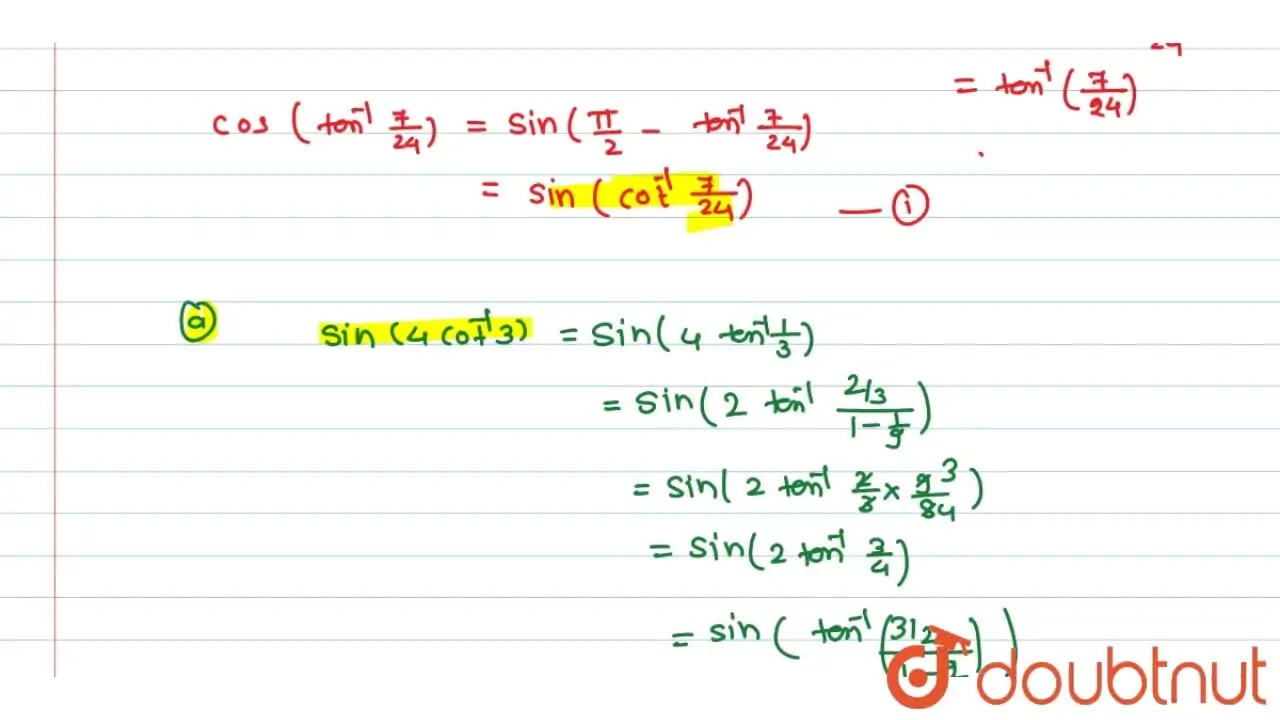 = tan⁻¹ (7/24)
cos (tan⁻¹ 7/24) = sin(π/2 - tan⁻¹ 7/24)
= sin (cot⁻¹ 7/24) — (i)
(a) sin (4 cot⁻¹ 3) = sin( 4 tan⁻¹ 1/3)
= sin( 2 tan⁻¹ (2/3)/(1 - 1/9))
= sin( 2 tan⁻¹ 2/3 × 9 3/84)
= sin( 2 tan⁻¹ 3/4)
= sin ( tan⁻¹ (3/2
doubtnut